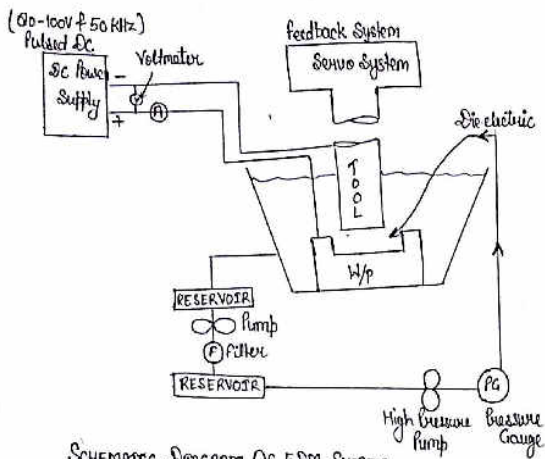 (80-100V & 50 KHz)
Pulsed Dc.
Dc Power
Supply
-
+
Voltmeter
V
A
feedback System
Servo System
Die-electric
TOOL
W/p
RESERVOIR
Pump
F
Filter
RESERVOIR
High Pressure
Pump
PG
Pressure
Gauge
SCHEMATIC DIAGRAM OF EDM SYSTEM